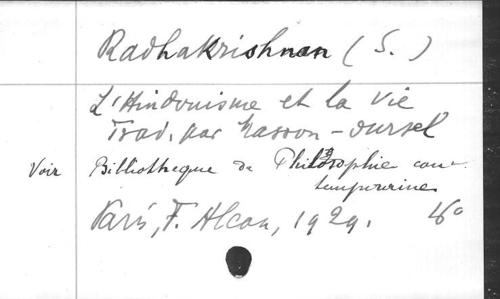 Radhakrishnan (S.)
L'Hindouisme et la Vie
Trad. par Masson-Oursel
Voir Bibliothèque de Philosophie con-
temporaine
Paris, F. Alcan, 1929. 16°